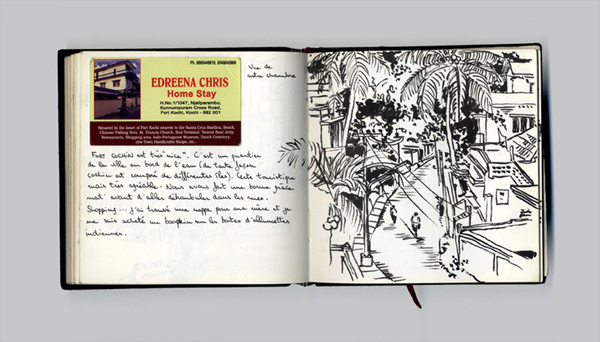 Ph.
EDREENA CHRIS
Home Stay
H.No.1/1047, Njaliparambu,
Kunnumpuram Cross Road,
Fort Kochi, Kochi - 682 001
Situated in the heart of Fort Kochi nearest to the Santa Cruz Basilica, Beach,
Chinese Fishing Nets, St. Francis Church, Bus Terminal, Tourist Boat Jetty,
Restaurants, Shopping area, Indo-Portuguese Museum, Dutch Cemetery,
Jew Town Handicrafts Shops, etc.
Vue de
notre chambre
FORT COCHIN est très "nice". C'est un quartier
de la ville au bord de l'eau (de toute façon
cochin est composé de différentes îles). Très touristique
mais très agréable. Nous avons fait une bonne grâce
mat' avant d'aller déambuler dans les rues.
Shopping... j'ai trouvé une nappe pour ma mère et je
me suis acheté un bouquin sur les boîtes d'allumettes
indiennes.